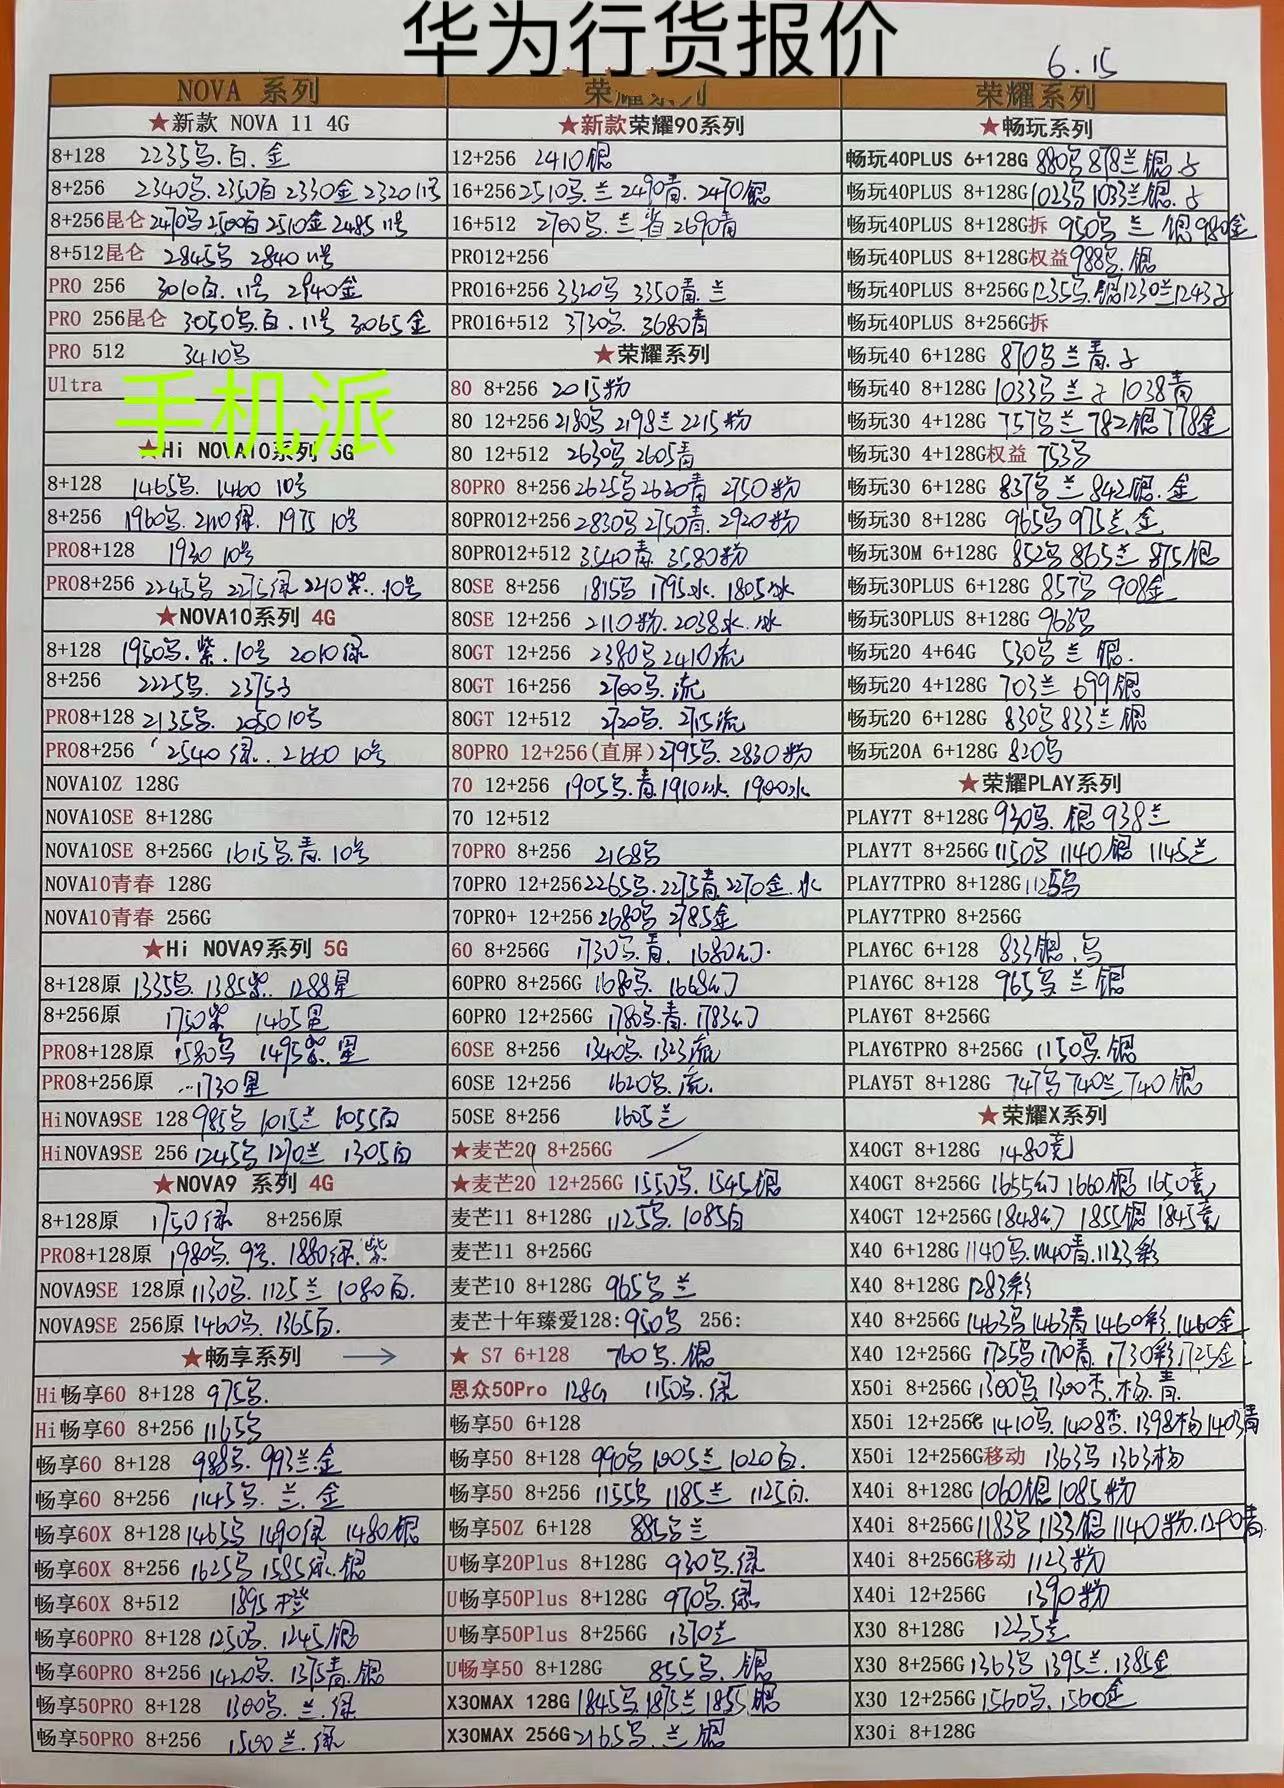 华为行货报价
6.15
NOVA 系列
★新款 NOVA 11 4G
8+128 2235乌.白.金
8+256 2340乌.2350白 2330金 2320 11号
8+256昆仑 2470乌 2500白 2510金 2485 11号
8+512昆仑 2845乌 2840 11号
PRO 256 3010白.11号 2940金
PRO 256昆仑 3050乌.白.11号 3065金
PRO 512 3410乌
Ultra
手机派
★Hi NOVA10系列 5G
8+128 1465乌. 1460 10号
8+256 1960乌. 2110绿. 1975 10号
PRO8+128 1930 10号
PRO8+256 2245乌 2275绿 2210紫..10号
★NOVA10系列 4G
8+128 1950乌.紫.10号 2010绿
8+256 2225乌. 2375子
PRO8+128 2135乌. 2050 10号
PRO8+256 2540绿.. 2660 10号
NOVA10Z 128G
NOVA10SE 8+128G
NOVA10SE 8+256G 1615乌.青.10号
NOVA10青春 128G
NOVA10青春 256G
★Hi NOVA9系列 5G
8+128原 1335乌. 1385紫. 1288星
8+256原 1750紫 1465星
PRO8+128原 1580乌 1495紫.星
PRO8+256原 1730星
HiNOVA9SE 128 985乌 1015兰 1055白
HiNOVA9SE 256 1245乌 1270兰 1305白
★NOVA9 系列 4G
8+128原 1750绿 8+256原
PRO8+128原 1980乌.9号.1880绿.紫
NOVA9SE 128原 1130乌. 1125兰 1080白.
NOVA9SE 256原 1460乌. 1365白.
★畅享系列 →
Hi畅享60 8+128 975乌.
Hi畅享60 8+256 1165乌
畅享60 8+128 988乌. 993兰.金
畅享60 8+256 1145乌. 兰. 金
畅享60X 8+128 1465乌 1490绿 1480银
畅享60X 8+256 1625乌 1595绿.银
畅享60X 8+512 1895橙
畅享60PRO 8+128 1250乌. 1245银
畅享60PRO 8+256 1420乌. 1375青.银
畅享50PRO 8+128 1300乌.兰.绿
畅享50PRO 8+256 1500兰.绿
荣耀系列
★新款荣耀90系列
12+256 2410银
16+256 2510乌.兰 2490青. 2470银
16+512 2700乌.兰 2690青
PRO12+256
PRO16+256 3320乌 3350青.兰
PRO16+512 3730乌. 3680青
★荣耀系列
80 8+256 2015粉
80 12+256 2180乌 2198兰 2215粉
80 12+512 2630乌 2605青
80PRO 8+256 2625乌 2620青 2750粉
80PRO12+256 2830乌 2750青. 2920粉
80PRO12+512 3540青. 3580粉
80SE 8+256 1815乌 1795水. 1805冰
80SE 12+256 2110粉.2038水.冰
80GT 12+256 2380乌 2410流
80GT 16+256 2700乌.流
80GT 12+512 2720乌. 2715流
80PRO 12+256(直屏) 2795乌. 2830粉
70 12+256 1905乌.青.1910冰. 1900水
70 12+512
70PRO 8+256 2168乌
70PRO 12+256 2265乌.2275青.2270金.水
70PRO+ 12+256 2680乌 2785金
60 8+256G 1730乌.青. 1680幻.
60PRO 8+256G 1680乌. 1668幻
60PRO 12+256G 1780乌.青.1783幻
60SE 8+256 1340乌. 1323流
60SE 12+256 1620乌.流.
50SE 8+256 1605兰
★麦芒20 8+256G
★麦芒20 12+256G 1550乌. 1545银
麦芒11 8+128G 1125乌. 1085白
麦芒11 8+256G
麦芒10 8+128G 965乌 兰
麦芒十年臻爱128:950乌 256:
★ S7 6+128 760乌.银
恩众50Pro 128G 1150乌.绿
畅享50 6+128
畅享50 8+128 990乌 1005兰 1020白.
畅享50 8+256 1155乌 1185兰 1125白.
畅享50Z 6+128 885乌兰
U畅享20Plus 8+128G 930乌.绿
U畅享50Plus 8+128G 970乌.绿
U畅享50Plus 8+256G 1370兰
U畅享50 8+128G 855乌. 银
X30MAX 128G 1845乌1875兰1855银
X30MAX 256G 2165乌.兰 银
荣耀系列
★畅玩系列
畅玩40PLUS 6+128G 880乌 878兰 银 子
畅玩40PLUS 8+128G 1023乌 1033兰银.子
畅玩40PLUS 8+128G拆 950乌 兰 银 980金
畅玩40PLUS 8+128G权益 988乌.银
畅玩40PLUS 8+256G 1235乌.银1230兰1243子
畅玩40PLUS 8+256G拆
畅玩40 6+128G 870乌 兰 青.子
畅玩40 8+128G 1033乌 兰 子 1038青
畅玩30 4+128G 757乌 兰 782银 778金
畅玩30 4+128G权益 753乌
畅玩30 6+128G 837乌 兰 842银.金
畅玩30 8+128G 965乌 975兰.金
畅玩30M 6+128G 852乌 865兰 875银
畅玩30PLUS 6+128G 857乌 908金
畅玩30PLUS 8+128G 963乌
畅玩20 4+64G 530乌 兰 银.
畅玩20 4+128G 703兰 699银
畅玩20 6+128G 830乌 833兰 银
畅玩20A 6+128G 820乌
★荣耀PLAY系列
PLAY7T 8+128G 930乌. 银 938兰
PLAY7T 8+256G 1150乌 1140银 1145兰
PLAY7TPRO 8+128G 1125乌
PLAY7TPRO 8+256G
PLAY6C 6+128 833银.乌
PlAY6C 8+128 965乌.兰 银
PLAY6T 8+256G
PLAY6TPRO 8+256G 1150乌.银
PLAY5T 8+128G 747乌 740兰 740银
★荣耀X系列
X40GT 8+128G 1480竞
X40GT 8+256G 1655幻 1660银 1650竞
X40GT 12+256G 1848幻 1855银 1845竞
X40 6+128G 1140乌.1140青.1123彩
X40 8+128G 1283彩
X40 8+256G 1463乌 1463青 1460彩.1460金
X40 12+256G 1725乌 1700青. 1730彩.1725金
X50i 8+256G 1300乌. 1300杏.杨.青.
X50i 12+256G 1410乌.1408杏.1398杨 1403青
X50i 12+256G移动 1363乌 1363杨
X40i 8+128G 1060银 1085粉
X40i 8+256G 1183乌 1133银 1140粉.1290青.
X40i 8+256G移动 1123粉
X40i 12+256G 1390粉
X30 8+128G 1235兰
X30 8+256G 1363乌 1395兰. 1385金
X30 12+256G 1560乌. 1560金
X30i 8+128G